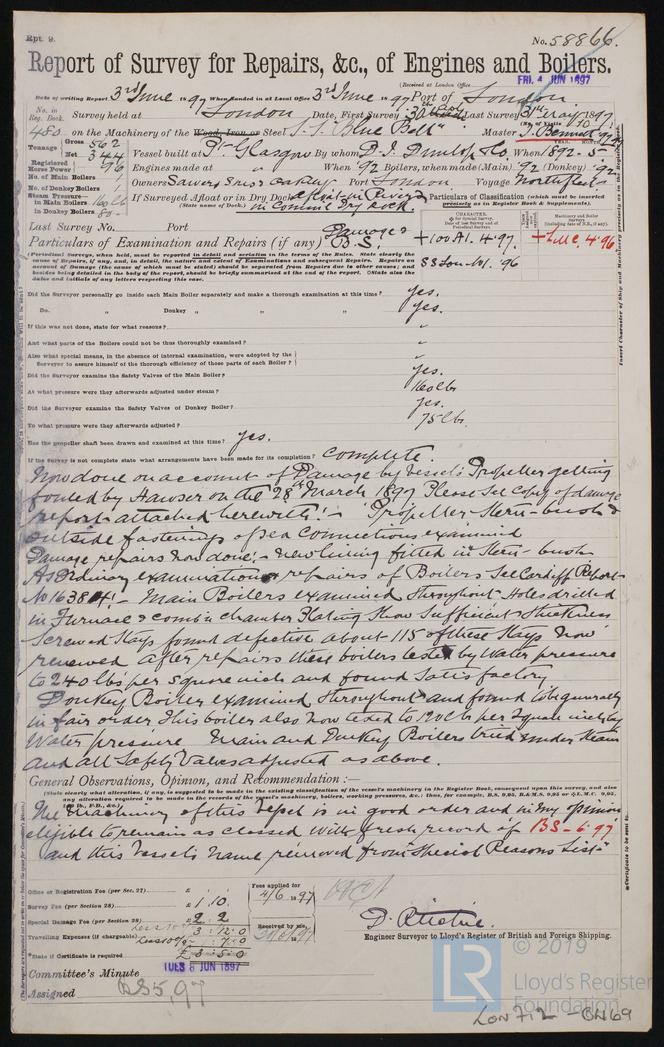 Rpt. 9.
No. 58866.
Report of Survey for Repairs, &c., of Engines and Boilers.
(Received at London Office
FRI. 4 JUN 1897
Date of writing Report 3rd June 1897 When handed in at Local Office 3rd June 1897 Port of London
No. in Reg. Book. Survey held at London Date, First Survey Last Survey 31st May 1897
480 on the Machinery of the Wood, Iron or Steel S.S. "Blue Bell" Master J. Bennett
Tonnage Gross 562 Net 344
Vessel built at Pt. Glasgow By whom D. J. Dunlop & Co. When 1892-5
Registered Horse Power 96
Engines made at " When 92 Boilers, when made (Main) 92 (Donkey) 92
No. of Main Boilers 1
Owners Port London Voyage
No. of Donkey Boilers 1
Steam Pressure in Main Boilers 160 lb
in Donkey Boilers 80
If Surveyed Afloat or in Dry Dock afloat in River &
(State name of Dock.) in Comml Dry Dock.
Particulars of Classification (which must be inserted precisely as in Register Book & Supplements).
Last Survey No. Port
Particulars of Examination and Repairs (if any) Damages B.S.
+100A1. 4.97. +LMC. 4.96
SS Lon. No1. 96
(Periodical Surveys, when held, must be reported in detail and seriatim in the terms of the Rules. State clearly the
cause of Repairs, if any, and, in detail, the nature and extent of Examinations and subsequent Repairs. Repairs on
account of Damage (the cause of which must be stated) should be separated from Repairs due to other causes; and
besides being detailed in the body of the report, should be briefly summarised at the end of the report. State also the
dates and initials of any letters respecting this case.
Did the Surveyor personally go inside each Main Boiler separately and make a thorough examination at this time? Yes.
Do. Donkey " " " Yes.
If this was not done, state for what reasons? "
And what parts of the Boilers could not be thus thoroughly examined? "
Also what special means, in the absence of internal examination, were adopted by the
Surveyor to assure himself of the thorough efficiency of those parts of each Boiler? "
Did the Surveyor examine the Safety Valves of the Main Boiler? Yes.
At what pressure were they afterwards adjusted under steam? 160 lbs
Did the Surveyor examine the Safety Valves of Donkey Boiler? Yes.
To what pressure were they afterwards adjusted? 75 lb.
Has the propeller shaft been drawn and examined at this time? Yes.
If the survey is not complete state what arrangements have been made for its completion? Complete.
Now done on account of Damage by Vessel's Propeller getting
fouled by Hawser on the 28th March 1897 Please See Copy of damage
report attached herewith:- Propeller, Stern-bush &
outside fastenings of sea connections examined
Damage repairs now done:- new lining fitted in Stern-bush
As Ordinary examination & repairs of Boilers See Cardiff Report
No 16384:- Main Boilers examined throughout Holes drilled
in Furnace & comb'n chamber Plating Show Sufficient thickness
Screwed Stays found defective about 115 of these Stays now
renewed after repairs these boilers tested by Water pressure
to 240 lbs per Square inch and found Satisfactory
Donkey Boiler examined throughout and found to be generally
in fair order This boiler also now tested to 120 lbs per Square inch by
Water pressure. Main and Donkey Boilers tried under steam
and all Safety Valves adjusted as above.
General Observations, Opinion, and Recommendation:—
(State clearly what alteration, if any, is suggested to be made in the existing classification of the vessel's machinery in the Register Book, consequent upon this survey, and also
any alteration required to be made in the records of the vessel's machinery, boilers, working pressures, &c.; thus, for example, B.S. 9,95, B.&M.S. 9,95 or L.M.C. 9,95,
The Machinery of this Vessel is in good order and in my opinion
eligible to remain as classed with fresh record of BS-6.97
and this Vessel's name removed from "Special Reasons List"
Office or Registration Fee (per Sec. 27) £ : :
Survey Fee (per Section 28) £ 1.10.
Special Damage Fee (per Section 28) £ 2.2
Less 10% 3.12.0
Travelling Expenses (if chargeable)
Less 10% 7.0
State if Certificate is required £3.5.0
Fees applied for 4/6 1897
Received by me,
D. Ritchie.
Engineer Surveyor to Lloyd's Register of British and Foreign Shipping.
Committee's Minute TUES 8 JUN 1897
Assigned BS 5,97
© 2019
LR
Lloyd's Register
Foundation
LON 712-0469